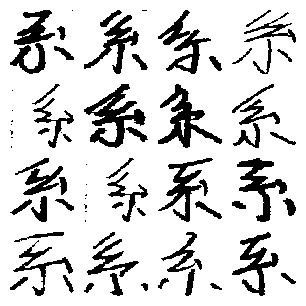 系系系系
系系系系
系系系系
系系系系